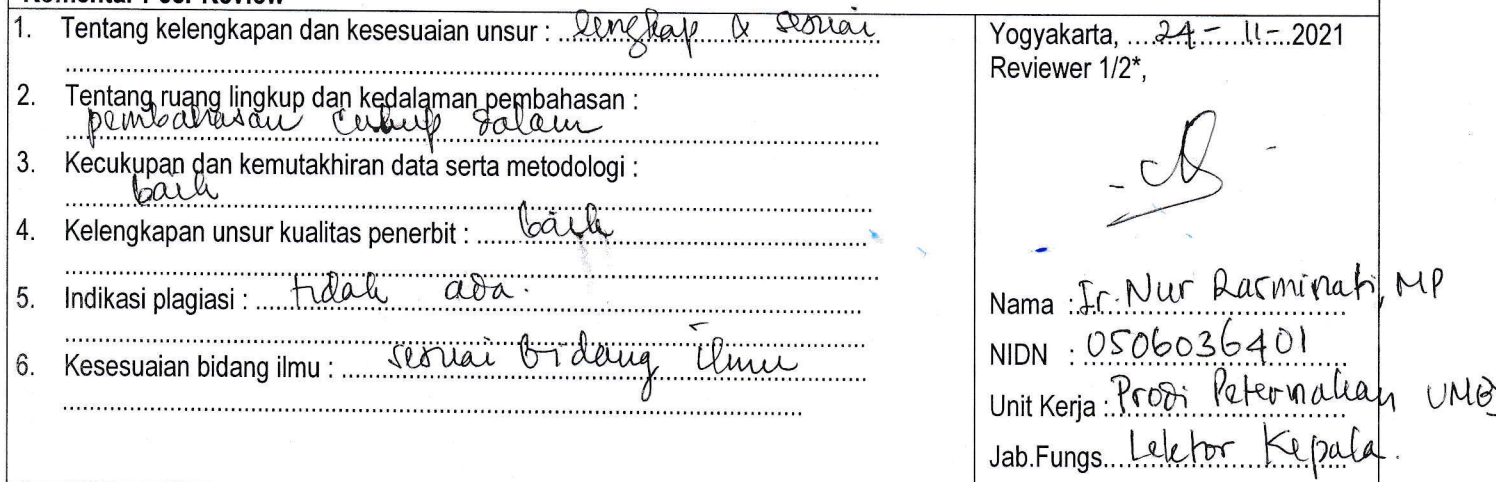 Komentar Peer Review
1. Tentang kelengkapan dan kesesuaian unsur : lengkap & sesuai
2. Tentang ruang lingkup dan kedalaman pembahasan :
pembahasan cukup dalam
3. Kecukupan dan kemutakhiran data serta metodologi :
baik
4. Kelengkapan unsur kualitas penerbit : baik
5. Indikasi plagiasi : tidak ada.
6. Kesesuaian bidang ilmu : sesuai bidang ilmu
Yogyakarta, 24-11-2021
Reviewer 1/2*,
Nama : Ir. Nur Rasminati, MP
NIDN : 0506036401
Unit Kerja : Prodi Peternakan UMB
Jab.Fungs. Lektor Kepala.